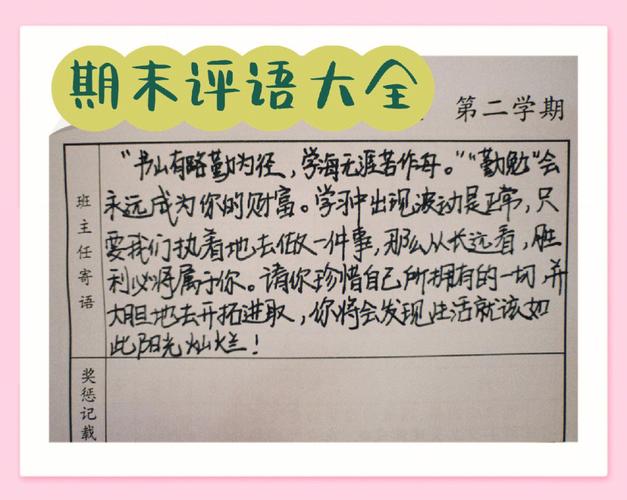 期末评语大全
第二学期
班主任寄语
"书山有路勤为径，学海无涯苦作舟。""勤勉"会
永远成为你的财富。学习中出现波动是正常，只
要我们执着地去做一件事，那么从长远看，胜
利必将属于你。请你珍惜自己所拥有的一切，并
大胆地去开拓进取，你将会发现生活就该如
此阳光灿烂！
奖惩记载